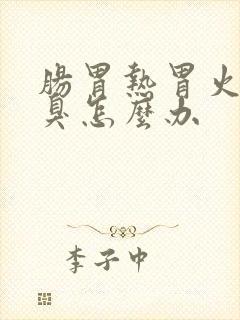 腸胃熱胃火
臭怎麼办
李子中